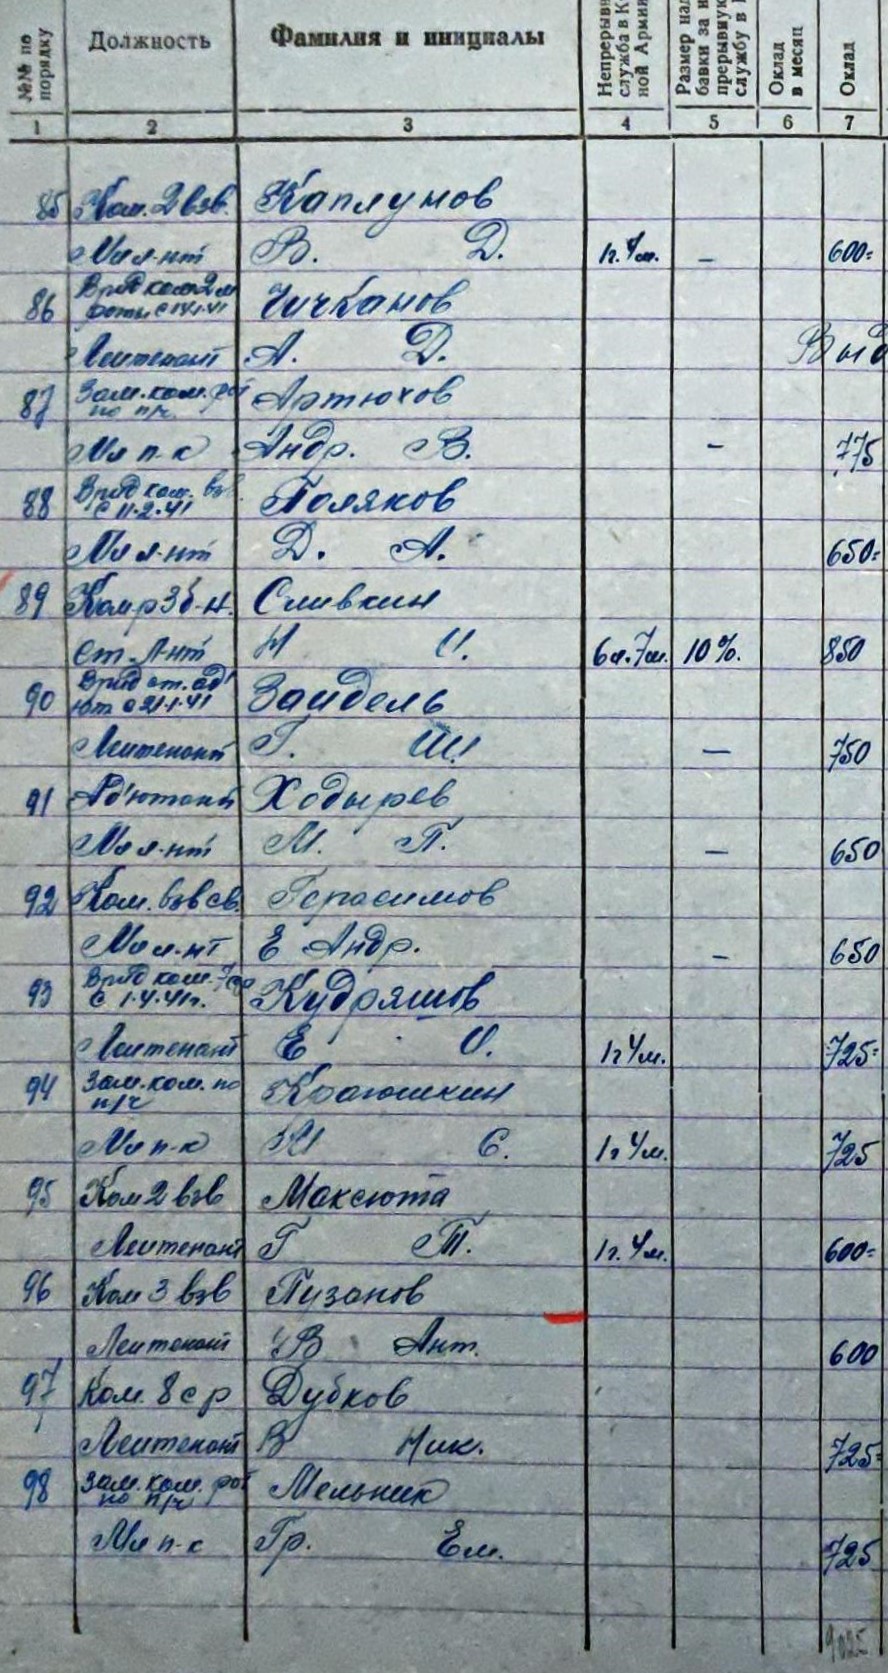 №№ по порядку Должность Фамилия и инициалы Непрерывн служба в К ной Арми Размер над бавки за н прерывную службу в Оклад в месяц Оклад
1 2 3 4 5 6 7
85 Ком. 2 взв. Каплунов
Мл л-нт В. Д. 1г. 4м. — 600=
86 Врид ком 2 м Чичканов
роты с
Лейтенант А. Д. Выб
87 Зам. ком. рот Артюхов
по п/ч.
Мл п-к Андр. В. — 775
88 Врид ком. взв. Поляков
с 11.2.41
Мл л-нт Д. А. 650=
89 Ком р 3 б-н. Сливкин
Ст. л-нт И. 6л. 7м. 10%. 850
90 Врид ст. ад' Зайдель
ют с 21.1.41
Лейтенант Г. Ш. — 750
91 Ад'ютант Ходырев
Мл л-нт М. П. — 650
92 Ком. взв св. Герасимов
Мл л-нт Е Андр. — 650
93 Врид ком. 7 Кудряшов
с 1.4.41г.
Лейтенант Е 1г 4м. 725=
94 Зам. ком. по
п/ч
Мл п-к С. 1г 4м. 725
95 Ком 2 взв Максюта
Лейтенант Г Т. 1г. 4м. 600=
96 Ком 3 взв Пузанов
Лейтенант В Ант. 600
97 Ком. 8 с р Дубков
Лейтенант В Ник. 725=
98 Зам. ком. рот Мельник
по п/ч
Мл п-к Гр. Ем. 725
9025